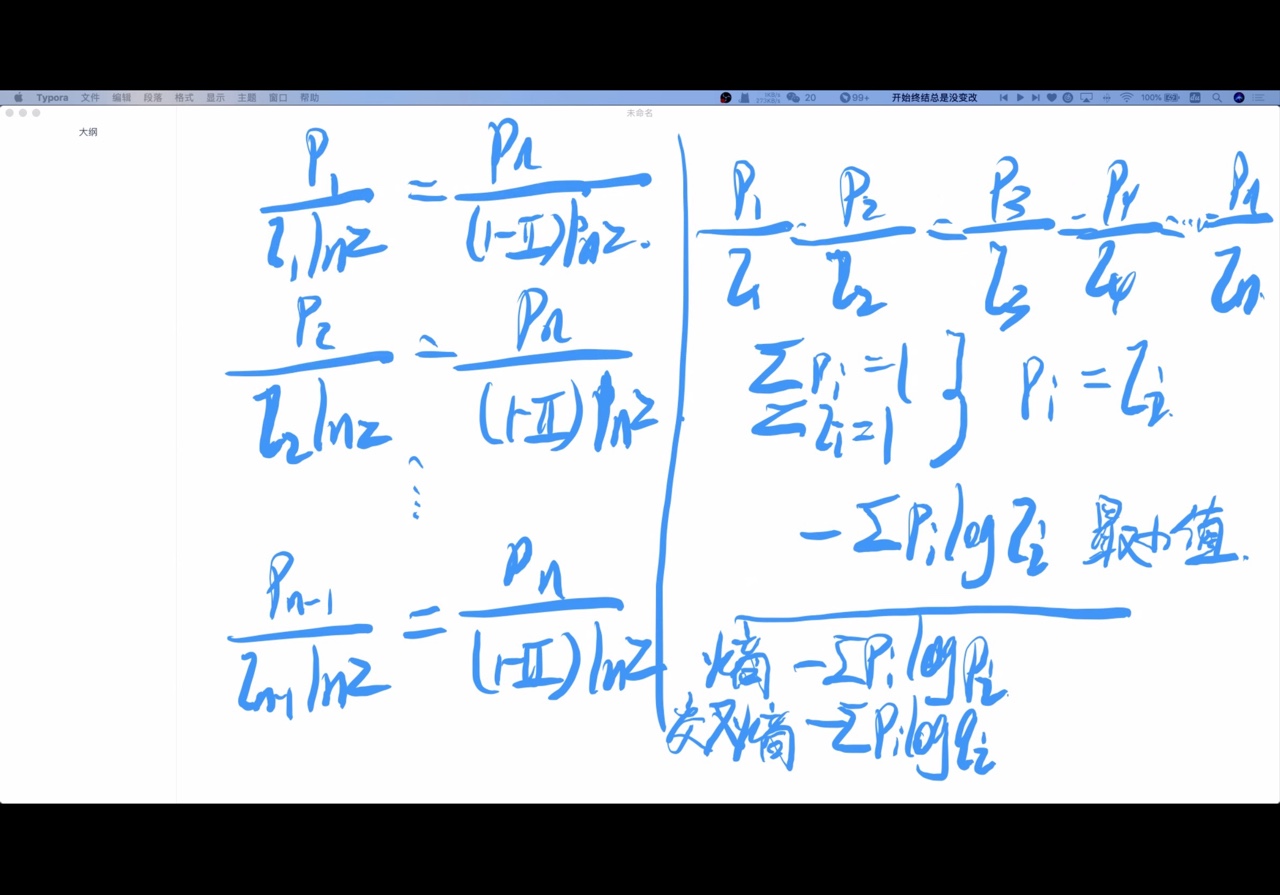 Typora 文件 编辑 段落 格式 显示 主题 窗口 帮助 20 99+ 开始终结总是没变改 100%
未命名
大纲
P₁/(Z₁ln2) = Pn/((1-Ⅱ)ln2)
P₂/(Z₂ln2) = Pn/((1-Ⅱ)ln2)
⋮
Pn-1/(Zn-1ln2) = Pn/((1-Ⅱ)ln2)
P₁/Z₁ = P₂/Z₂ = P₃/Z₃ = P₄/Z₄ = … = Pn/Zn
ΣPi=1
ΣZi=1 } Pi = Zi
-ΣPi log Zi 最小值.
熵 -ΣPi log Pi
交叉熵 -ΣPi log qi